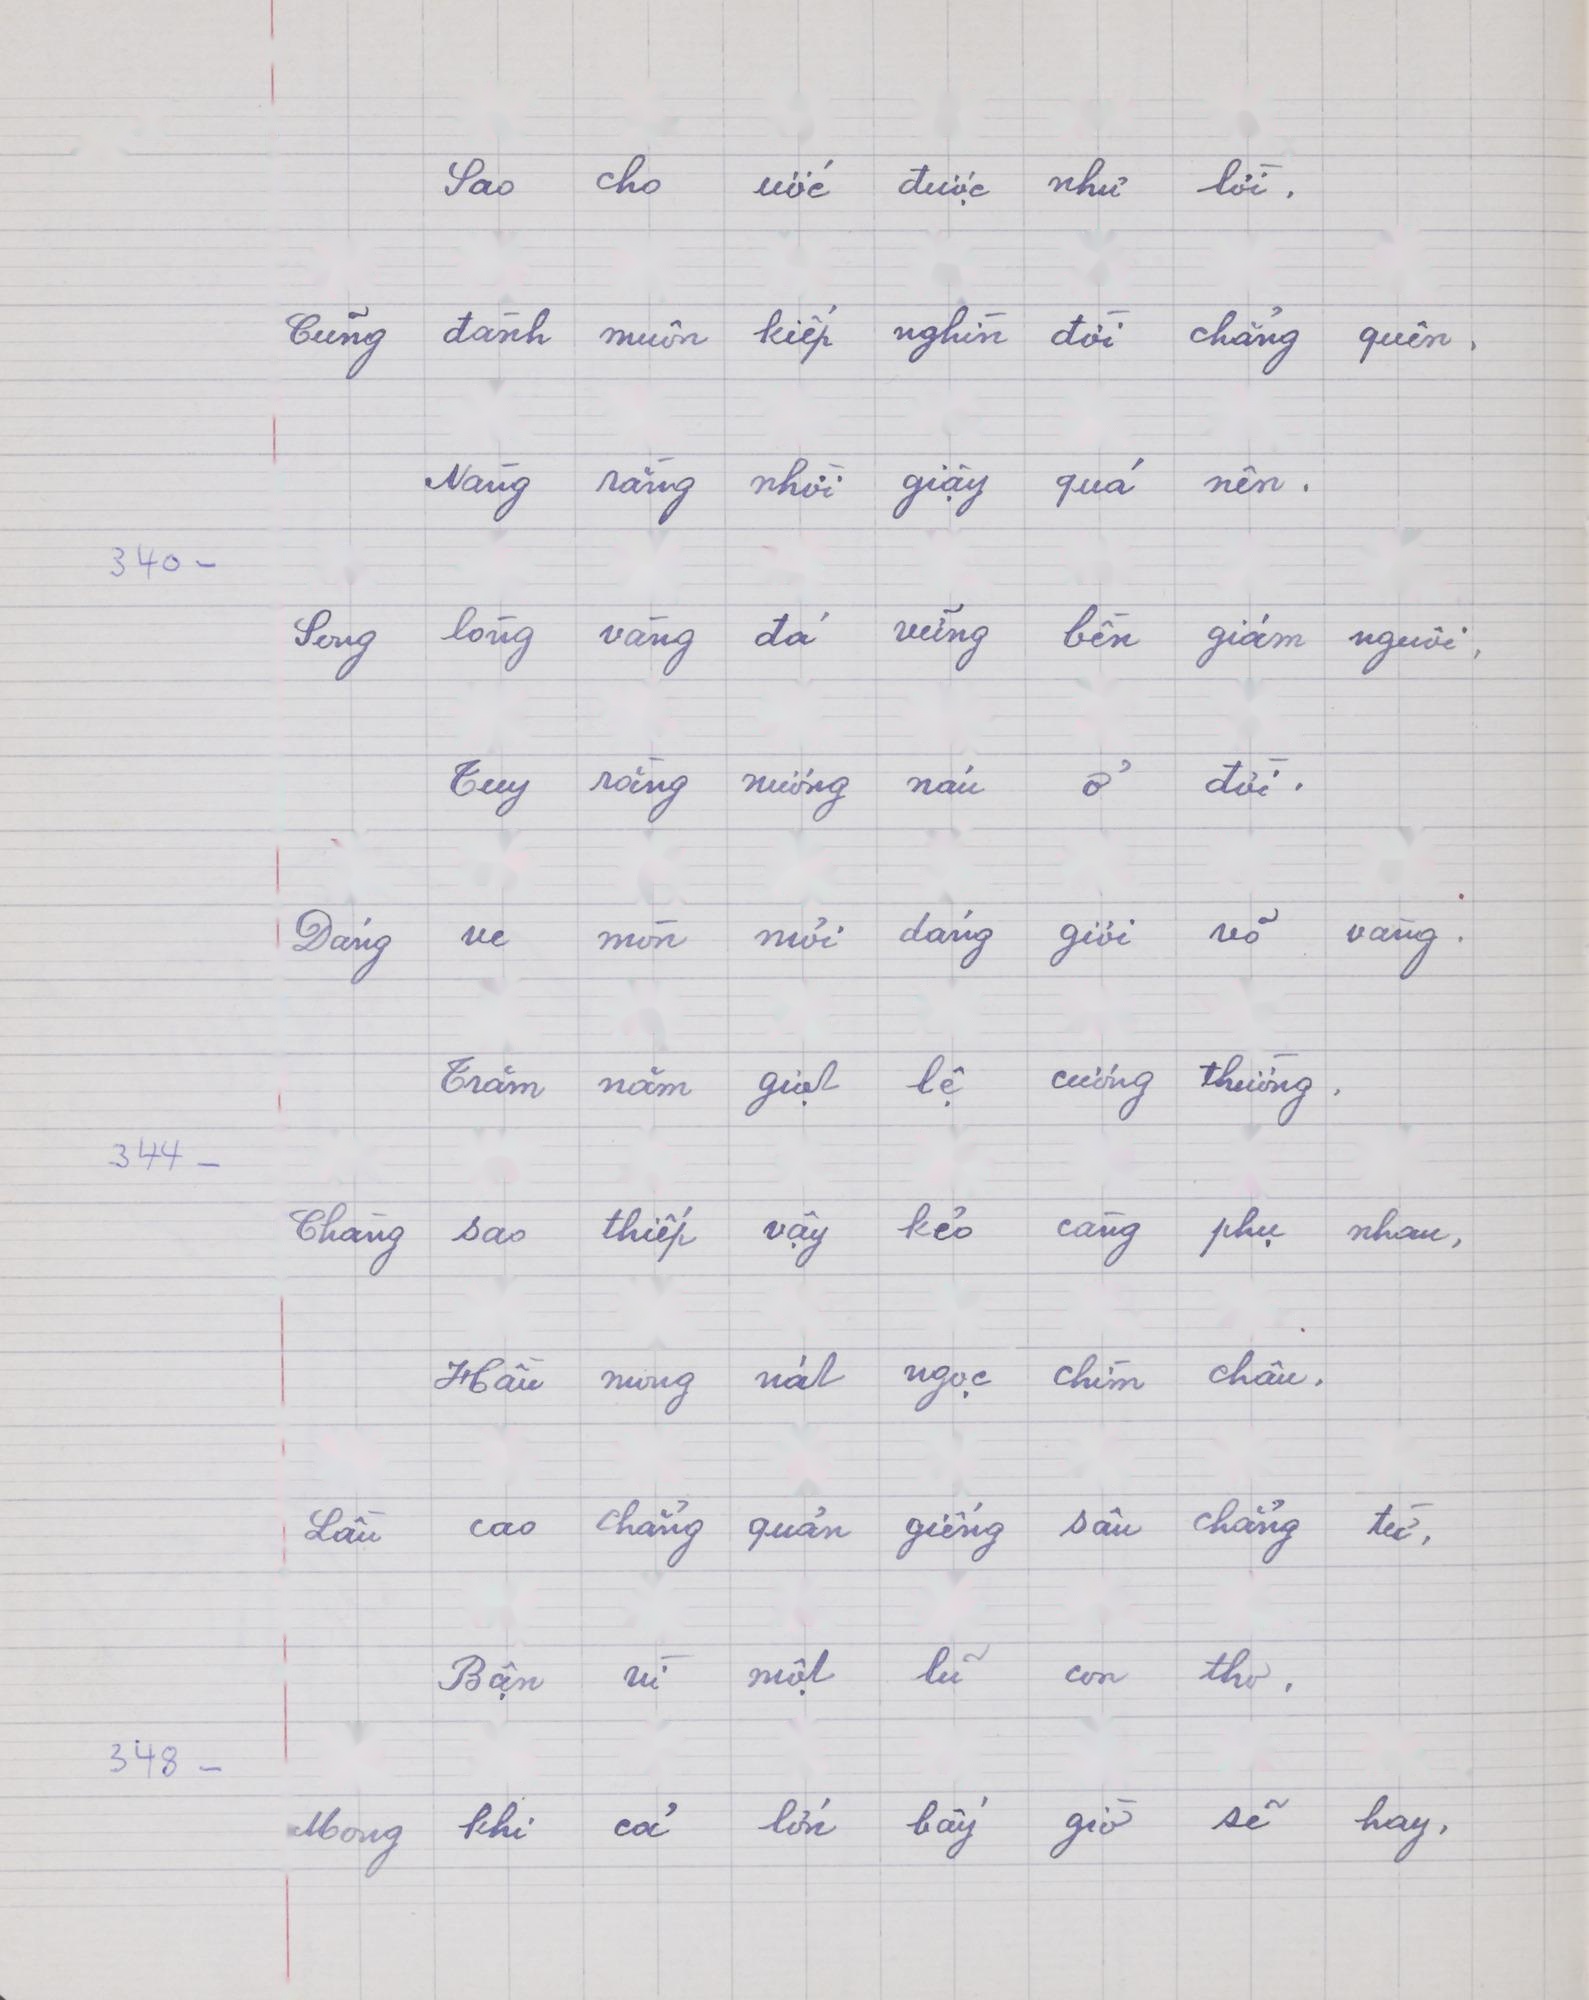 Sao cho ước được như lời.
Cũng đành muôn kiếp nghìn đời chẳng quên.
Nàng rằng nhời giậy quá nên.
340-
Song lòng vàng đá vững bền giám nguôi,
Tuy rằng nương náu ở đời.
Dáng ve mòn mỏi dáng giòi võ vàng.
Trăm năm giọt lệ cương thường.
344-
Chàng sao thiếp vậy kẻo càng phụ nhau,
Hầu mong nát ngọc chìm châu.
Lầu cao chẳng quản giếng sâu chẳng từ,
Bận vì một lũ con thơ,
348-
Mong khi cả lớn bấy giờ sẽ hay,